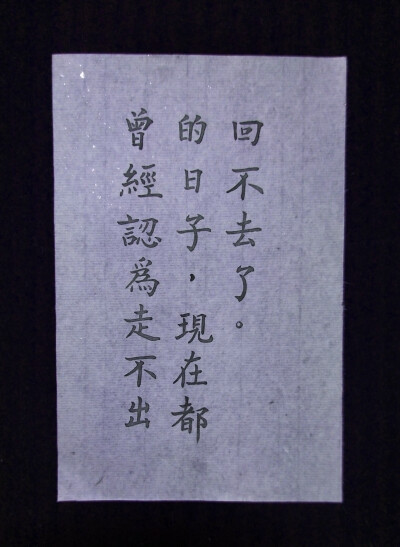 曾經認爲走不出
的日子，現在都
回不去了。